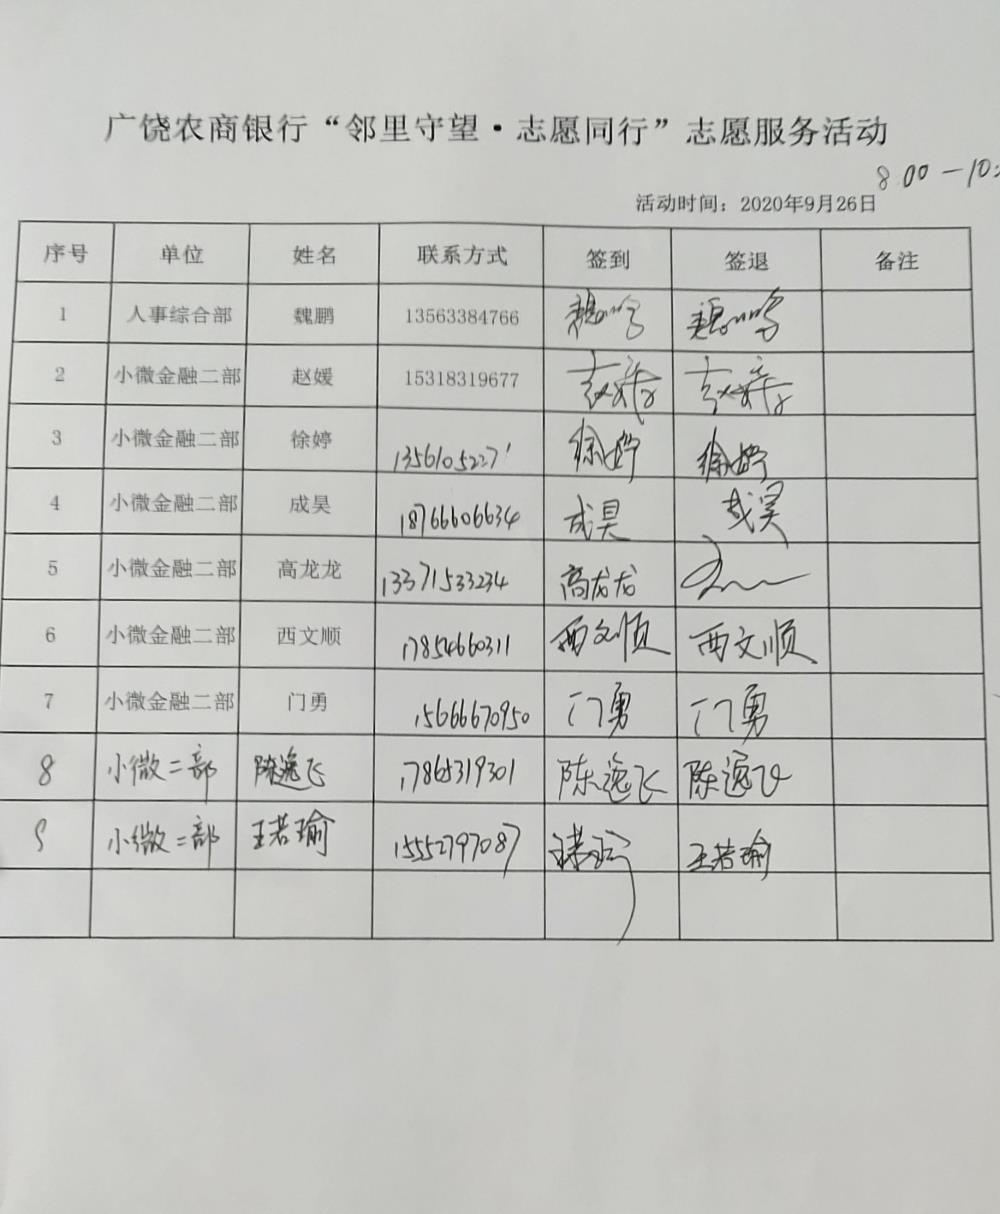 广饶农商银行“邻里守望·志愿同行”志愿服务活动
8 00 — 10:
活动时间：2020年9月26日
序号 单位 姓名 联系方式 签到 签退 备注
1 人事综合部 魏鹏 13563384766 魏鹏 魏鹏
2 小微金融二部 赵媛 15318319677 赵媛 赵媛
3 小微金融二部 徐婷 徐婷 徐婷
4 小微金融二部 成昊 18766606634 成昊 成昊
5 小微金融二部 高龙龙 13371533234 高龙龙
6 小微金融二部 西文顺 17854660311 西文顺 西文顺
7 小微金融二部 门勇 15666670950 门勇 门勇
8 小微二部 陈逸飞 17865319301 陈逸飞 陈逸飞
9 小微二部 王若瑜 15552797087 王若瑜